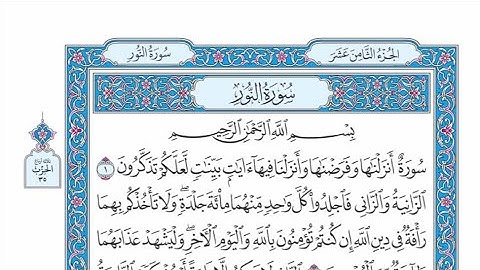 سورة النور
الجزء الثامن عشر
سُورَةُ النُّورِ
بِسْمِ اللَّهِ الرَّحْمَٰنِ الرَّحِيمِ
سُورَةٌ أَنزَلْنَاهَا وَفَرَضْنَاهَا وَأَنزَلْنَا فِيهَا ءَايَاتٍۭ بَيِّنَاتٍ لَّعَلَّكُمْ تَذَكَّرُونَ ١
الزَّانِيَةُ وَالزَّانِي فَاجْلِدُوا كُلَّ وَاحِدٍ مِّنْهُمَا مِائَةَ جَلْدَةٍ ۖ وَلَا تَأْخُذْكُم بِهِمَا
رَأْفَةٌ فِي دِينِ اللَّهِ إِن كُنتُمْ تُؤْمِنُونَ بِاللَّهِ وَالْيَوْمِ الْآخِرِ ۖ وَلْيَشْهَدْ عَذَابَهُمَا
ثلاثة أرباع
الحزب
٣٥